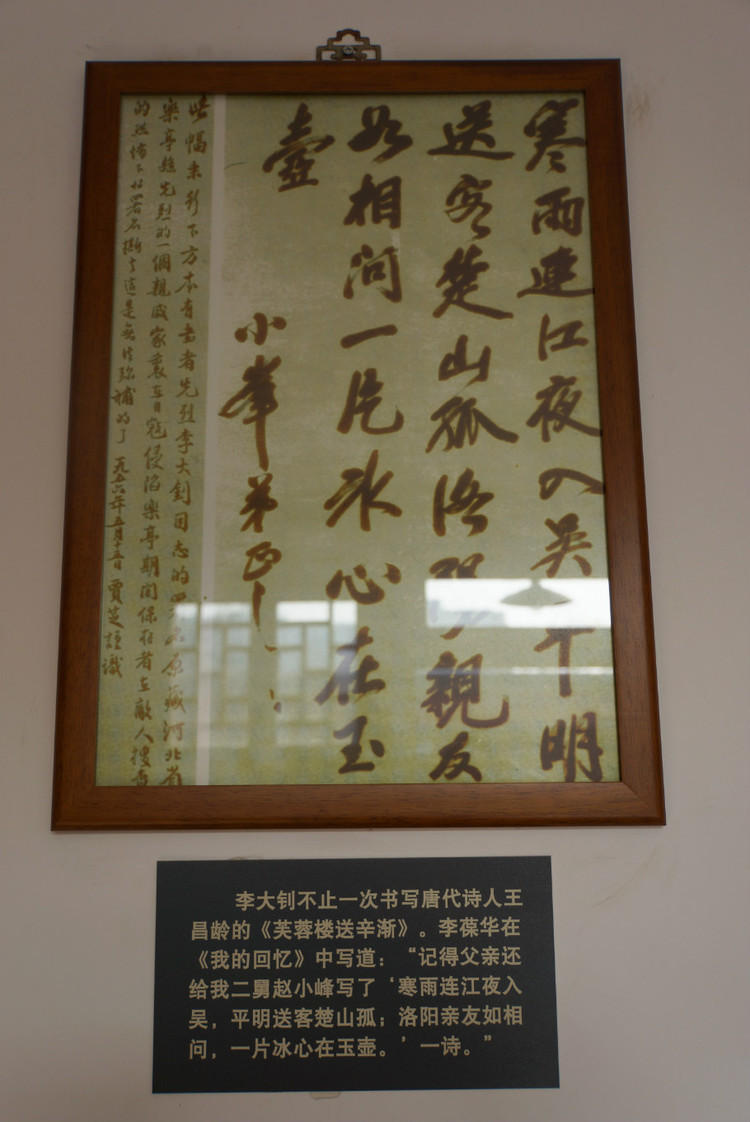 寒雨連江夜入吴平明
送客楚山孤洛陽親友
如相问一片冰心在玉
壺
小峯弟正
此幅末行下方本有書者先烈李大釗同志的署名原藏河北省
樂亭縣先烈的一個親戚家裏在日寇侵陷樂亭期間保存者在敵人搜查
的恐怖下把署名撕去這是無法弥補的了 一九五六年五月十五日 賈芝謹識
李大钊不止一次书写唐代诗人王
昌龄的《芙蓉楼送辛渐》。李葆华在
《我的回忆》中写道：“记得父亲还
给我二舅赵小峰写了‘寒雨连江夜入
吴，平明送客楚山孤；洛阳亲友如相
问，一片冰心在玉壶。’一诗。”